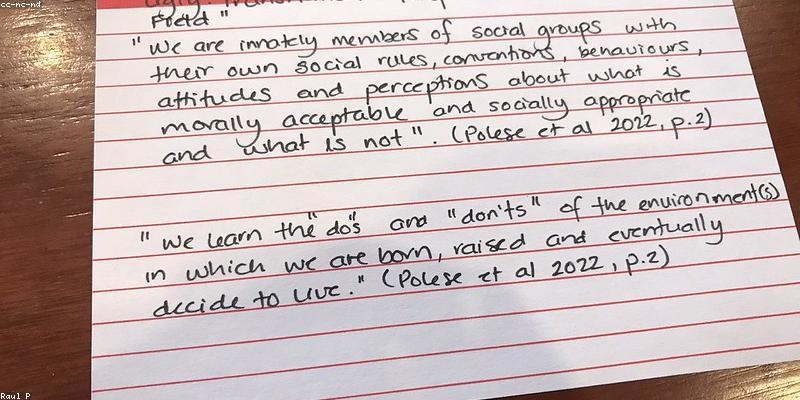 cc-nc-nd
Field"
"We are innately members of social groups with
their own social rules, conventions, behaviours,
attitudes and perceptions about what is
morally acceptable and socially appropriate
and what is not". (Polese et al 2022, p.2)
"we learn the "do's" and "don'ts" of the environment(s)
in which we are born, raised and eventually
decide to live." (Polese et al 2022, p.2)
Raul P